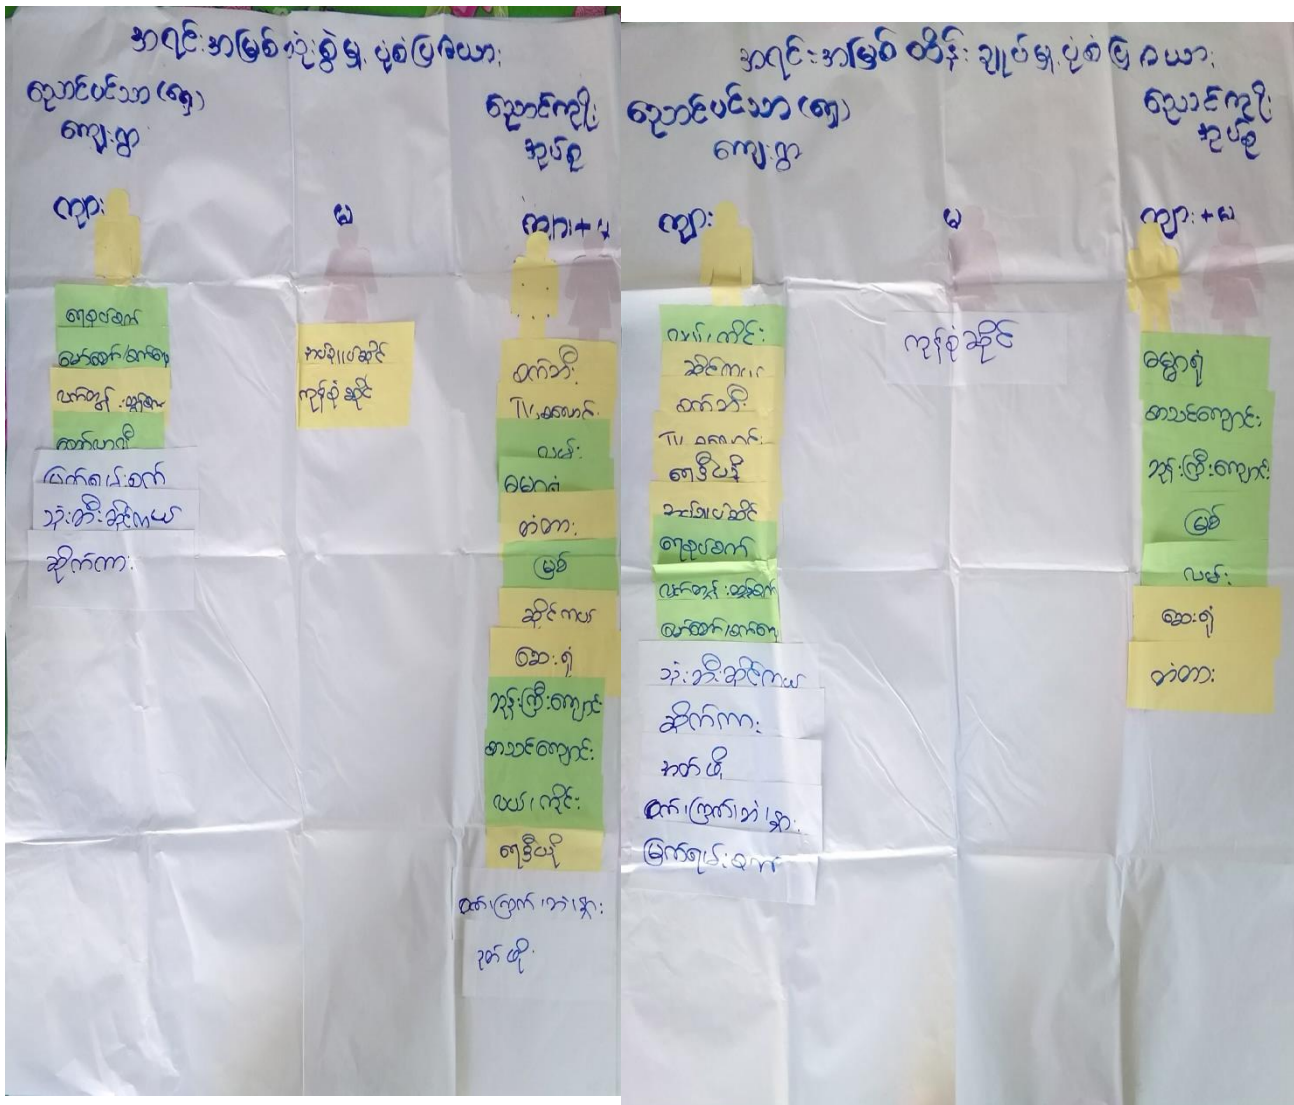 အရင်းအမြစ် သုံးစွဲမှု ပုံစံပြဇယား
ညောင်ပင်သာ (ရှေ့)
ကျေးရွာ
ညောင်ကျိုး
အုပ်စု
ကျား
မ
ကျား + မ
ရေစုပ်စက်
လက်တွန်းထွန်စက်
ထော်လာဂျီ
မြက်ရိတ်စက်
သုံးဘီးဆိုင်ကယ်
ဆိုက်ကား
အပ်ချုပ်ဆိုင်
ကုန်စုံဆိုင်
စက်ဘီး
TV, စလောင်း
လမ်း
ဓမ္မာရုံ
တံတား
မြစ်
ဆိုင်ကယ်
ဆေးရုံ
ဘုန်းကြီးကျောင်း
စာသင်ကျောင်း
လယ်၊ ကိုင်း
ရေဒီယို
ဝက်၊ ကြက်၊ ဘဲ၊ နွား
အရင်းအမြစ် ထိန်းချုပ်မှု ပုံစံပြဇယား
ညောင်ပင်သာ (ရှေ့)
ကျေးရွာ
ညောင်ကျိုး
အုပ်စု
ကျား
မ
ကျား + မ
လယ်၊ ကိုင်း
ဆိုင်ကယ်
စက်ဘီး
TV, စလောင်း
ရေဒီယို
အပ်ချုပ်ဆိုင်
ရေစုပ်စက်
လက်တွန်းထွန်စက်
သုံးဘီးဆိုင်ကယ်
ဆိုက်ကား
ဝက်၊ ကြက်၊ ဘဲ၊ နွား
မြက်ရိတ်စက်
ကုန်စုံဆိုင်
ဓမ္မာရုံ
စာသင်ကျောင်း
ဘုန်းကြီးကျောင်း
မြစ်
လမ်း
ဆေးရုံ
တံတား